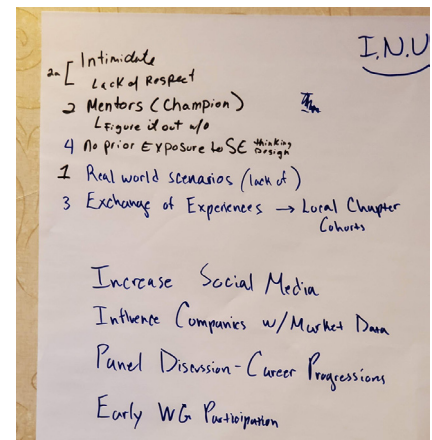 I.N.U
2a [ Intimidate
Lack of Respect
2 Mentors (Champion)
Figure it out w/o
4 No prior Exposure to SE thinking Design
1 Real world scenarios (lack of)
3 Exchange of Experiences → Local Chapter
Cohorts
Increase Social Media
Influence Companies w/Market Data
Panel Discussion - Career Progressions
Early WG Participation